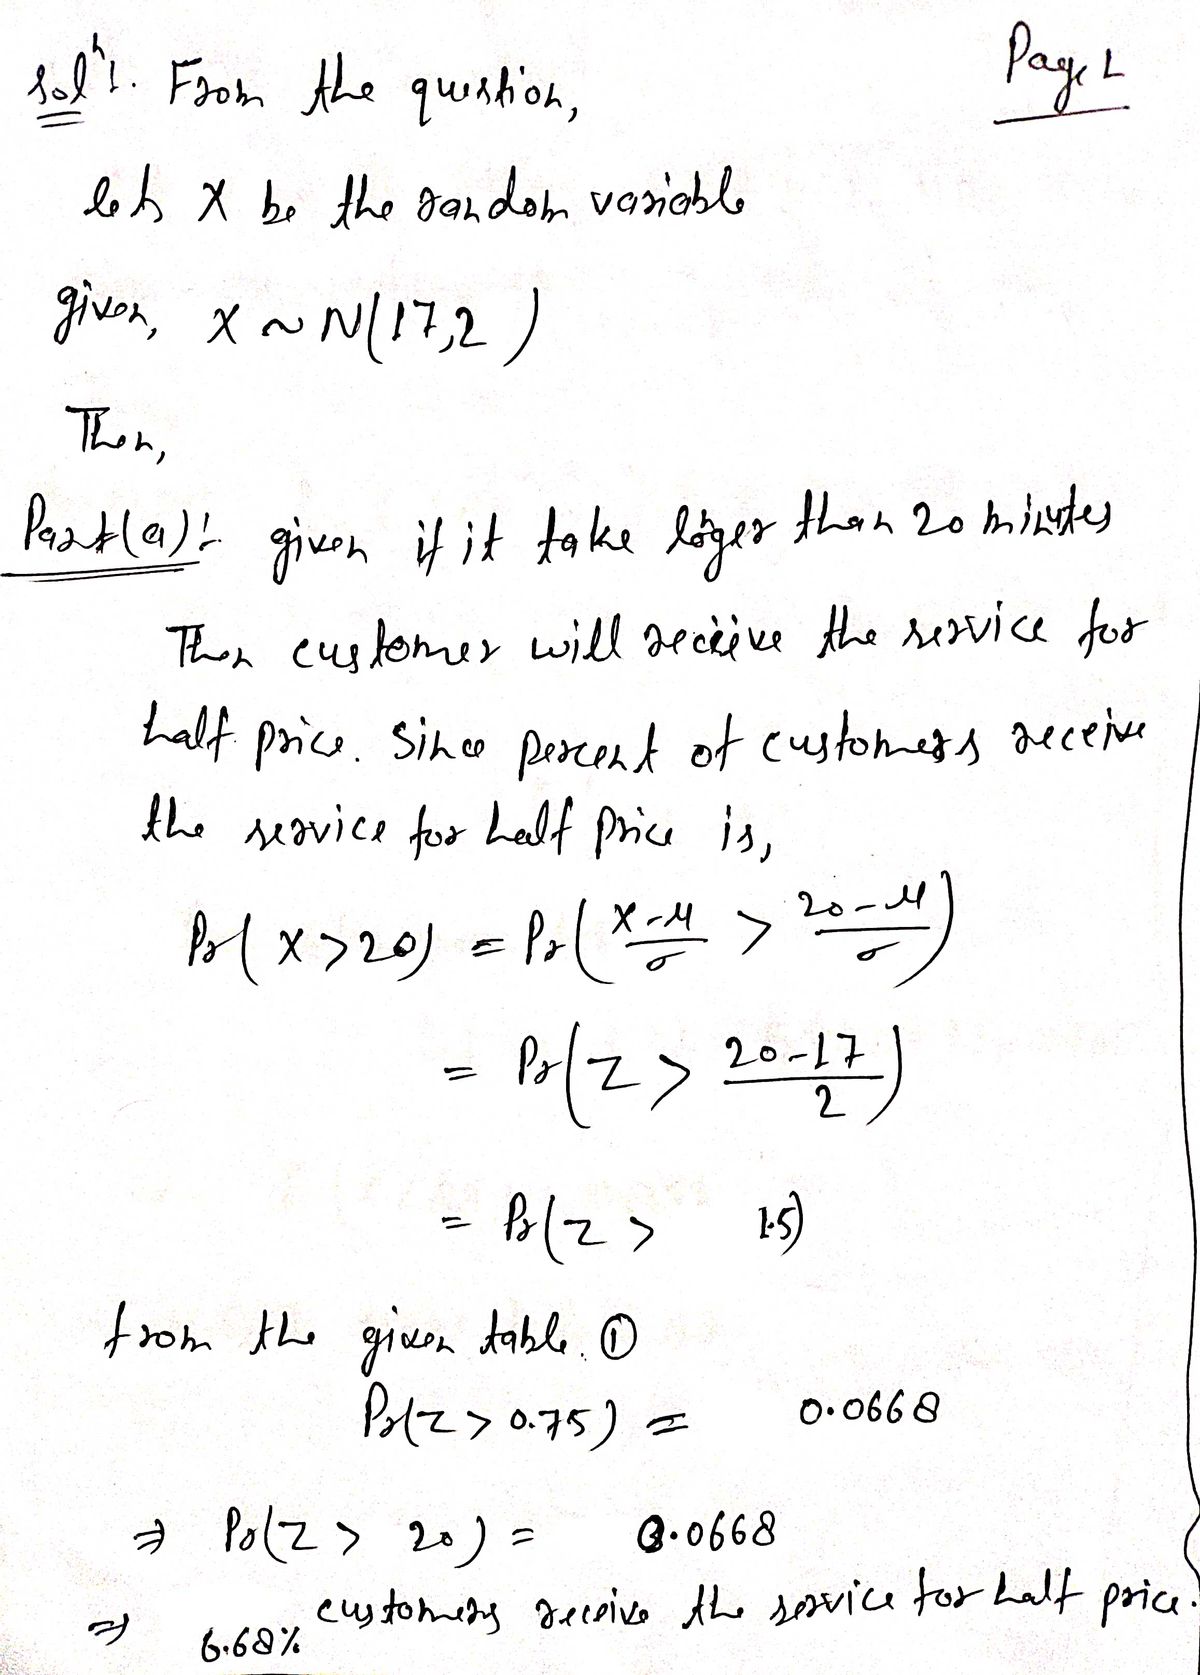 Page 1
Solⁿ!. From the question,
let X be the random variable
given, X ~ N(17,2)
Then,
Part(a)! given if it take loger than 20 minutes
Then customer will receive the service for
half price. Since percent of customers receive
the service for half price is,
Pr(X>20) = Pr((X-μ)/σ > (20-μ)/σ)
= Pr(Z > (20-17)/2)
= Pr(Z > 1.5)
from the given table. ①
Pr(Z > 0.75) = 0.0668
⇒ Pr(Z > 20) = 0.0668
⇒ 6.68% customers receive the service for half price.